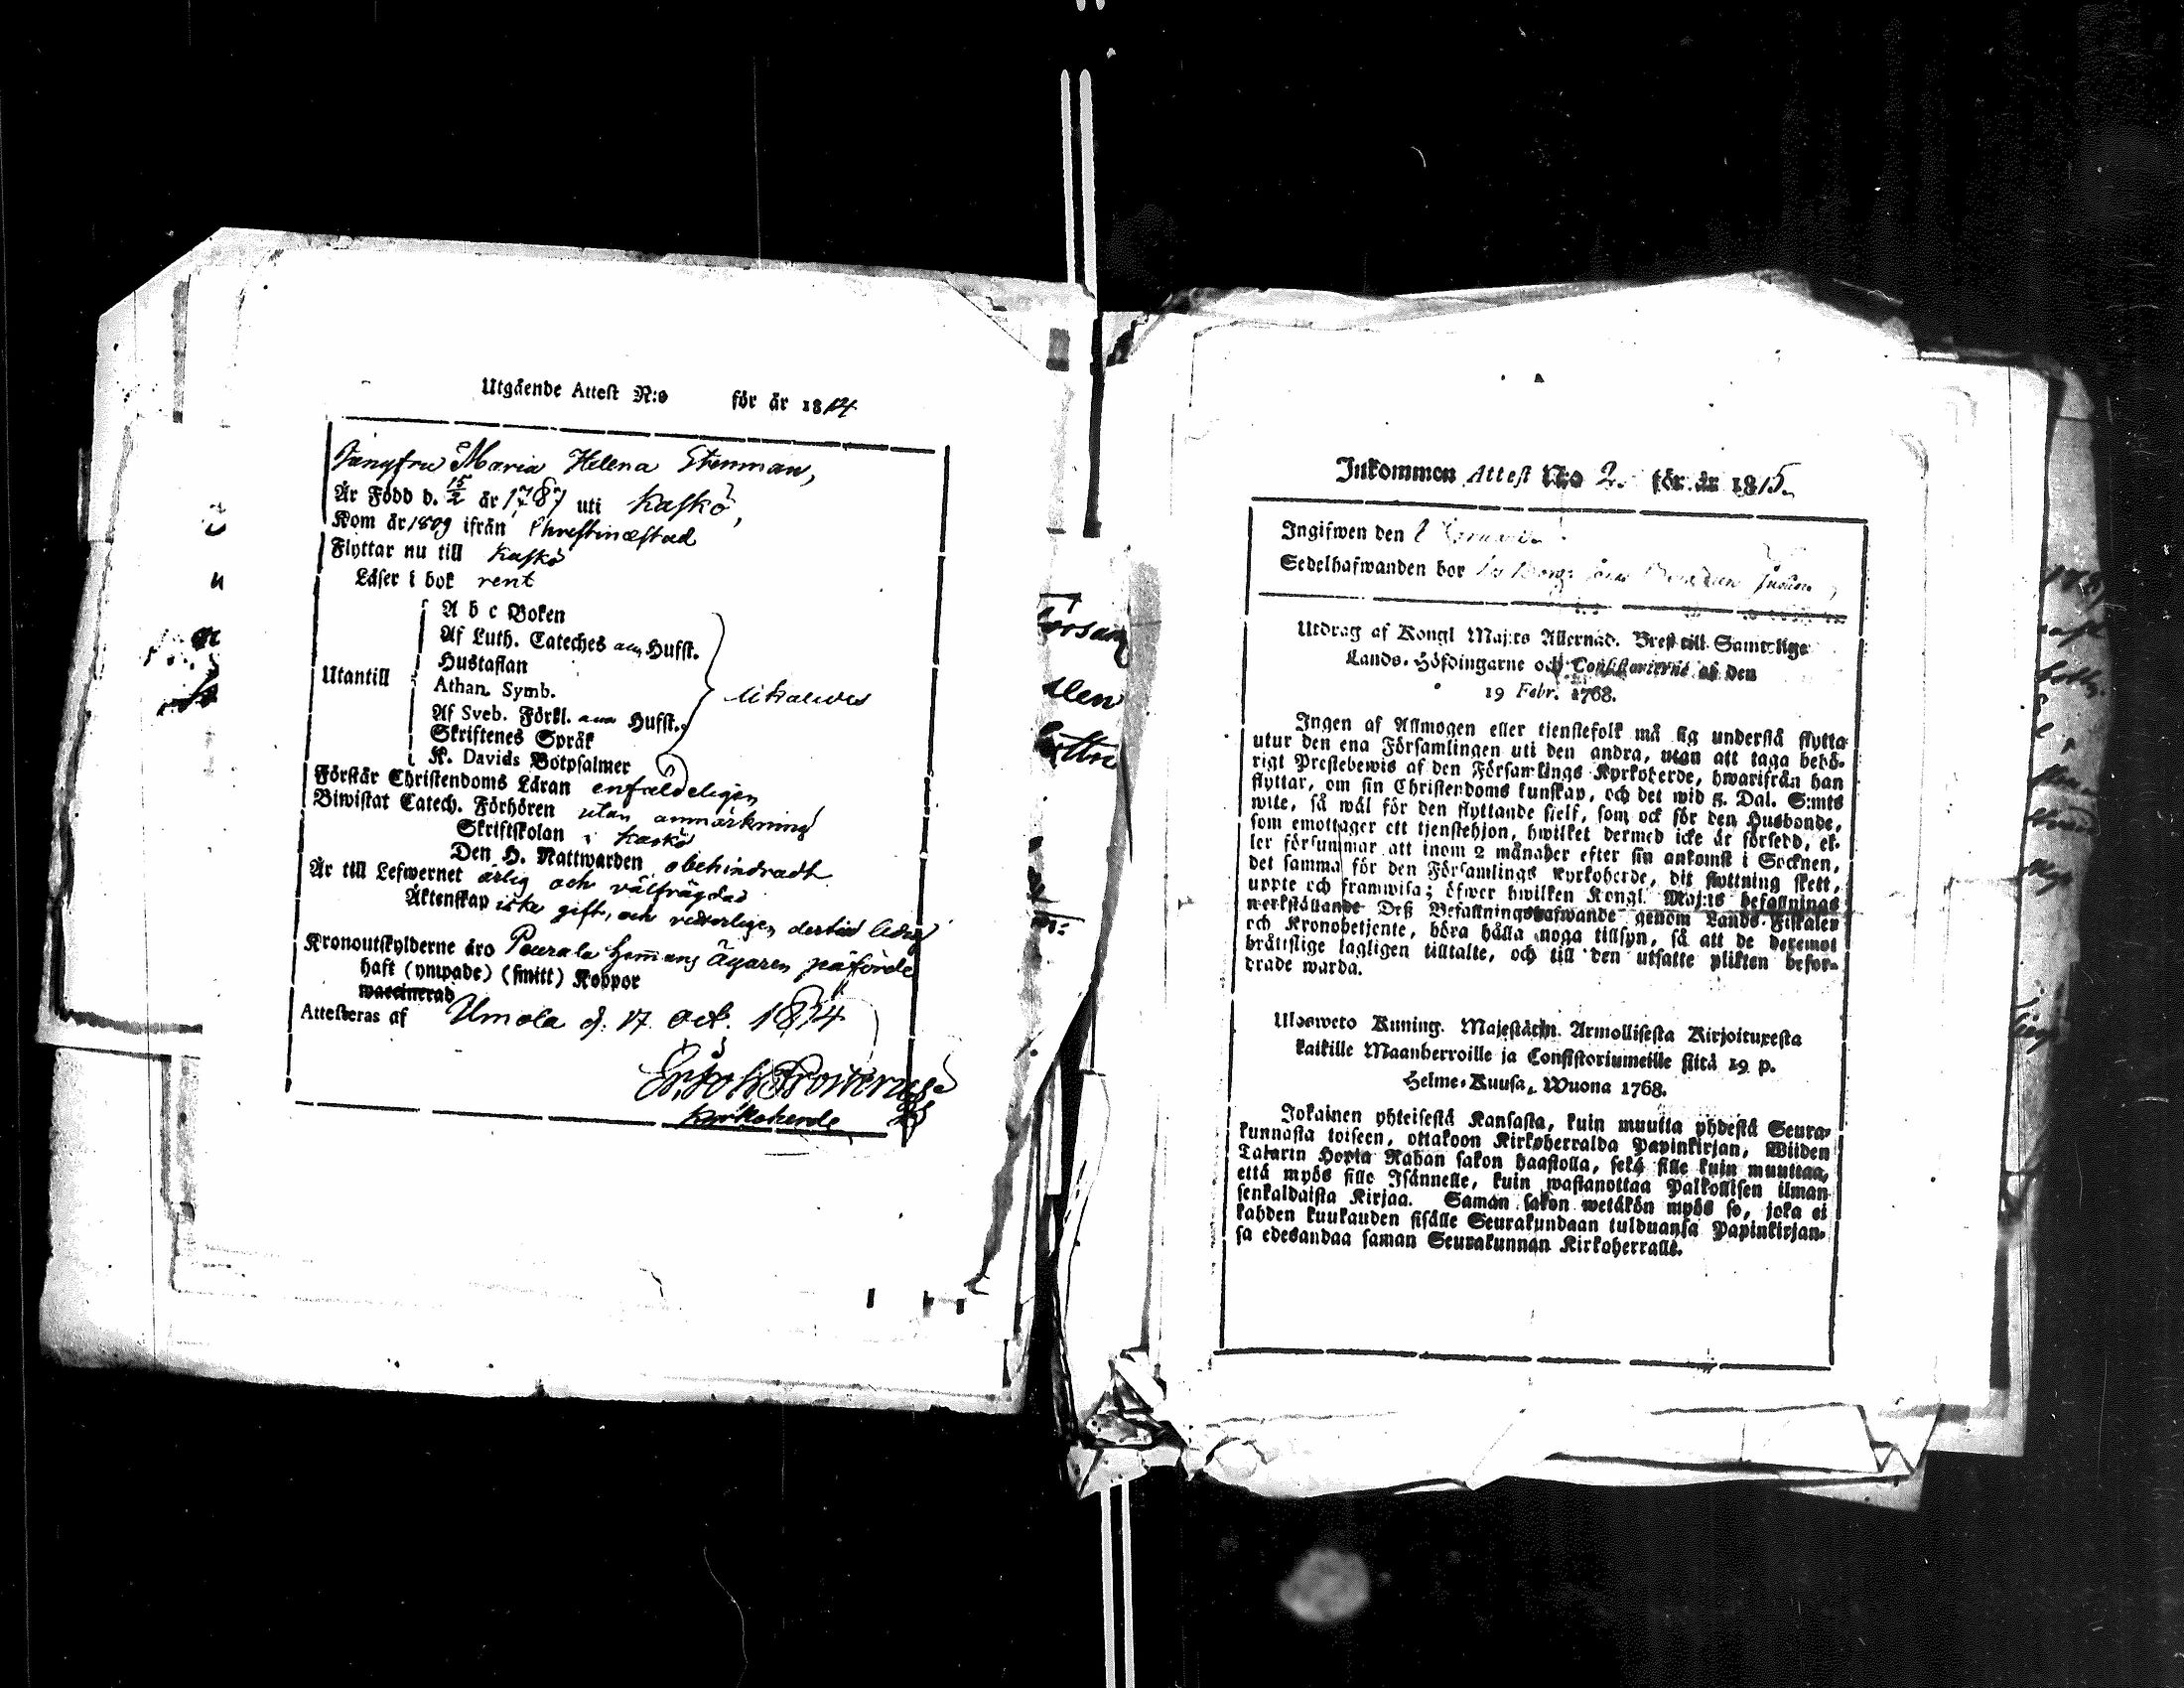 Utgående Attest N:o för år 1814
Jungfru Maria Helena Stenman,
Är Född d. 15/2 år 1787 uti Kaskö,
Kom år 1809 ifrån Christinæstad
Flyttar nu till Kaskö
Läser i bok rent
Utantill
A b c Boken
Af Luth. Cateches Hufst.
Hustaflan
Athan. Symb.
Af Sveb. Förkl. Hufst.
Skriftenes Språk
K. Davids Botpsalmer
Förstår Christendoms Läran enfaldeligen
Biwistat Catech. Förhören utan anmärkning
Skriftskolan i Kaskö
Den H. Nattwarden obehindradt
Är till Lefwernet ärlig och välfrägdad
Äktenskap icke gift, och
Kronoutskylderne äro påförde
haft (ympade) (smitt) Koppor
waccinerad
Attesteras af d. 17 Oct. 1814
Kyrkoherde
Inkommen Attest N:o 2. för år 1815.
Ingifwen den
Sedelhafwanden bor
Utdrag af Kongl Maj:ts Allernåd. Bref till Samtelige
Lands-Höfdingarne och Consistorierne af den
19 Febr. 1768.
Ingen af Allmogen eller tienstefolk må sig understå flytta
utur den ena Församlingen uti den andra, utan att taga behö-
rigt Prestebewis af den Församlings Kyrkoherde, hwarifrån han
flyttar, om sin Christendoms kunskap, och det wid 5. Dal. S:mts
wite, så wäl för den flyttande sielf, som ock för den Husbonde,
som emottager ett tjenstehjon, hwilket dermed icke är försedd, el-
ler försummar att inom 2 månader efter sin ankomst i Socknen,
det samma för den Församlings Kyrkoherde, dit flyttning skett,
uppte och framwisa; öfwer hwilken Kongl. Maj:ts befallnings
werkställande Deß Befallningshafwande genom Lands-Fiskaler
och Kronobetjente, böra hålla noga tillsyn, så att de deremot
bråttslige lagligen tilltalte, och till den utsatte plikten befor-
drade warda.
Ulosweto Kuning. Majestätin Armollisesta Kirjoituxesta
kaikille Maanherroille ja Consistoriumeille siitä 19 p.
Helme-Kuusa, Wuona 1768.
Jokainen yhteisestä Kansasta, kuin muutta yhdestä Seura-
kunnasta toiseen, ottakoon Kirkoherralda Papinkirjan, Wiiden
Talarin Hopia Rahan sakon haastolla, sekä sille kuin muuttaa,
että myös sille Isännelle, kuin wastanottaa Palkollisen ilman
senkaldaista Kirjaa. Saman sakon wetäkön myös se, joka ei
kahden kuukauden sisälle Seurakundaan tulduansa Papinkirjan-
sa edesandaa saman Seurakunnan Kirkoherralle.